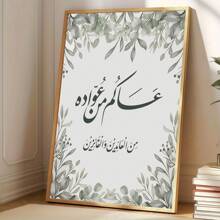 عساكم من عوّاده
من العايدين والفايزين